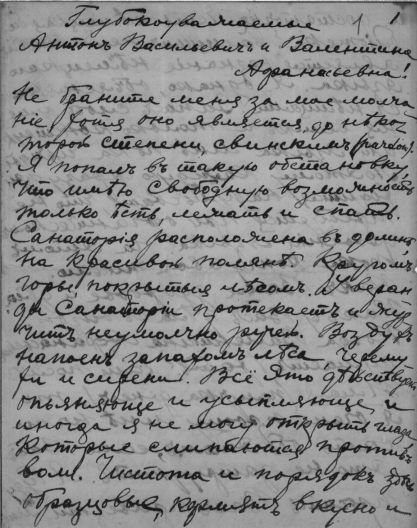 1
Глубокоуважаемые
Антонъ Васильевичъ и Валентина
Афанасьевна!
Не браните меня за мое молча
ніе хотя оно является, до нѣкот
торой степени, свинскимъ
Я попалъ въ такую обстановку,
что имѣю свободную возможность
только ѣсть, лежать и спать.
Санаторія расположена въ долинѣ
на красивой полянѣ. Кругомъ
горы, покрытыя лѣсомъ. У веран
ды Санаторіи протекаетъ и жур
читъ неумолчно ручей. Воздухъ
напоенъ запахомъ лѣса, черему
хи и сирени. Всё это дѣйствуетъ
опьяняюще и усыпляюще, и
иногда я не могу открыть глаза
которые слипаются противъ
воли. Чистота и порядокъ здѣсь
образцовые, кормятъ вкусно и